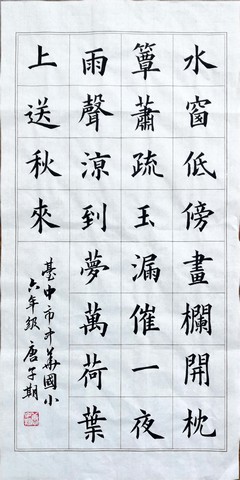 水窗低傍畫欄開枕
簟蕭疏玉漏催一夜
雨聲涼到夢萬荷葉
上送秋來
臺中市華國小
六年級 唐子期